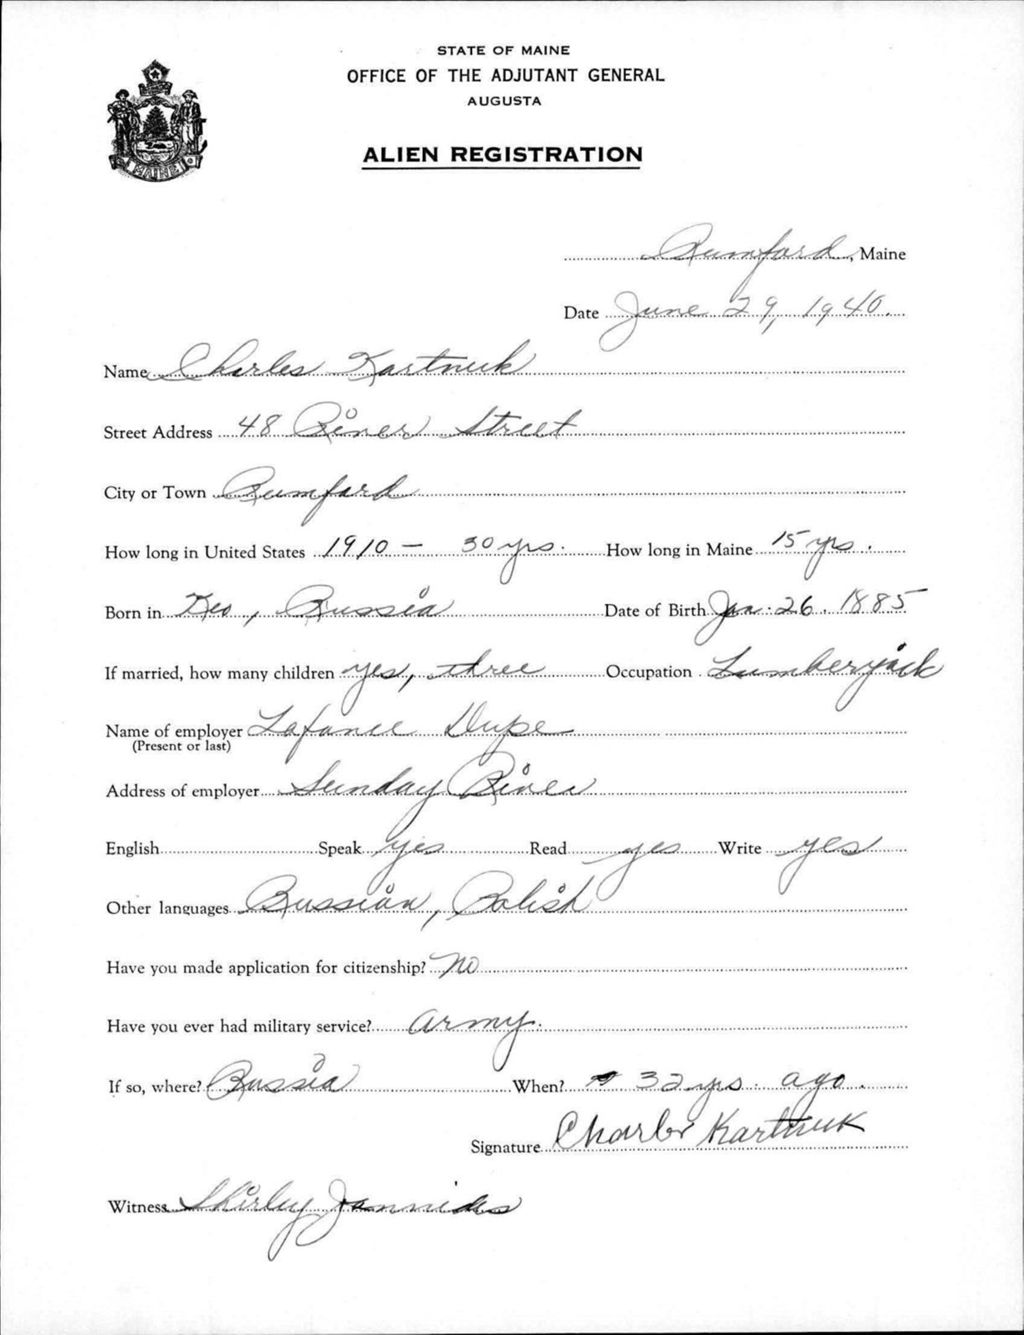 STATE OF MAINE
OFFICE OF THE ADJUTANT GENERAL
AUGUSTA
MAINE
ALIEN REGISTRATION
Rumford, Maine
Date June 29, 1940.
Name Charles Kartnuk
Street Address 48 River Street
City or Town Rumford
How long in United States 1910 — 30 yrs. How long in Maine 15 yrs.
Born in Keo, Russia Date of Birth Jan. 26. 1885
If married, how many children yes, three Occupation Lumberjack
Name of employer Lafance Dupe
(Present or last)
Address of employer Sunday River
English Speak yes Read yes Write yes
Other languages Russian, Polish
Have you made application for citizenship? No
Have you ever had military service? Army.
If so, where? Russia When? 32 yrs. ago.
Signature Charles Kartnuk
Witness Shirley